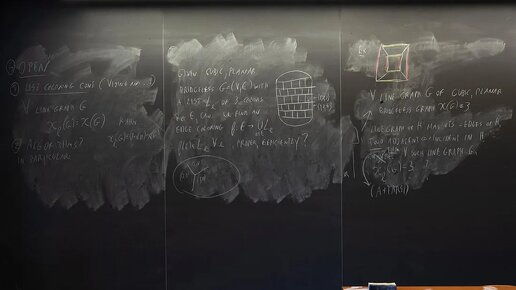 OPEN
LIST COLORING CONJ (VIZING
∀ LINE GRAPH G
χℓ(G) = χ(G)
KAHN
ALG OR THMS?
IN PARTICULAR
GIVEN CUBIC, PLANAR
BRIDGELESS G=(V,E) WITH
A LIST Lₑ OF 3 COLORS
∀e∈E, CAN WE FIND AN
EDGE COLORING f: E→∪Lₑ
f(e)∈Lₑ ∀e, PROPER, EFFICIENTLY?
Ex
∀ LINE GRAPH G OF CUBIC, PLANAR
BRIDGELESS GRAPH χ(G)=3
LINE GRAPH OF H HAS VTS = EDGES OF H
TWO ADJACENT
IN H
∀ SUCH LINE GRAPH G,
χℓ(G)=3